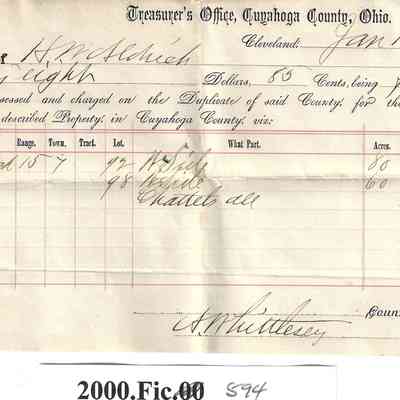 Treasurer's Office, Cuyahoga County, Ohio.
Cleveland: Jan
H. W. Aldrich
eight Dollars, 85 Cents, being
sessed and charged on the Duplicate of said County, for th
described Property, in Cuyahoga County, viz:
Range. Town. Tract. Lot. What Part. Acres.
15 7 92 80
98 Middle 60
Chattels all
Coun
H Whittlesey
2000.Fic.00 894